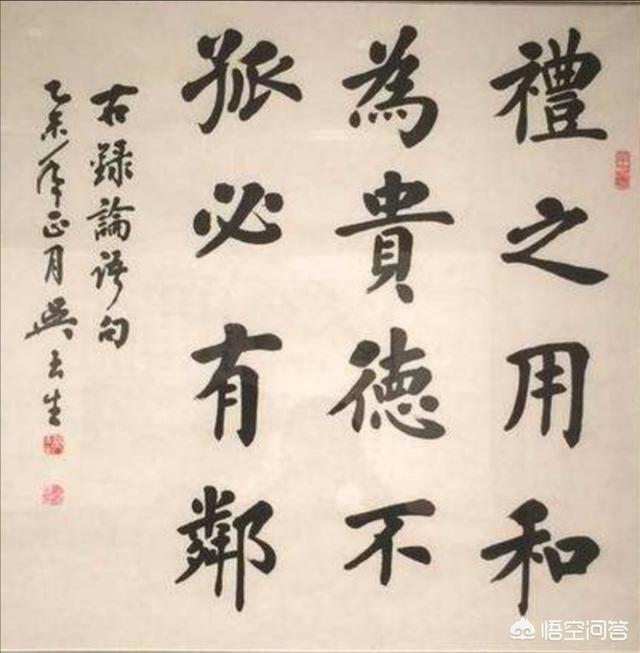 禮之用和
為貴德不
孤必有鄰
右錄論語句
乙未年正月吳玉生
悟空问答